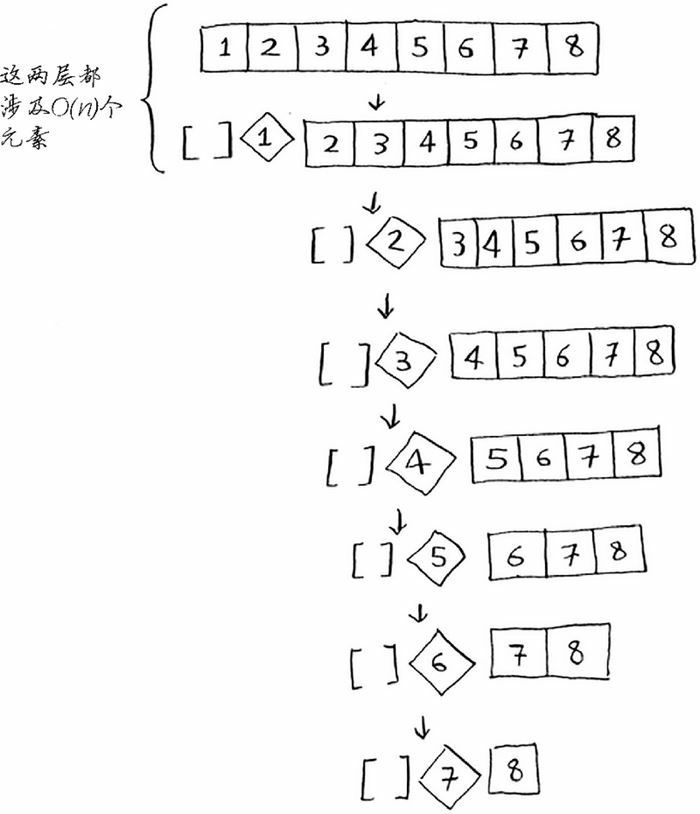 这两层都
涉及O(n)个
元素
1 2 3 4 5 6 7 8
[ ] 1 2 3 4 5 6 7 8
[ ] 2 3 4 5 6 7 8
[ ] 3 4 5 6 7 8
[ ] 4 5 6 7 8
[ ] 5 6 7 8
[ ] 6 7 8
[ ] 7 8